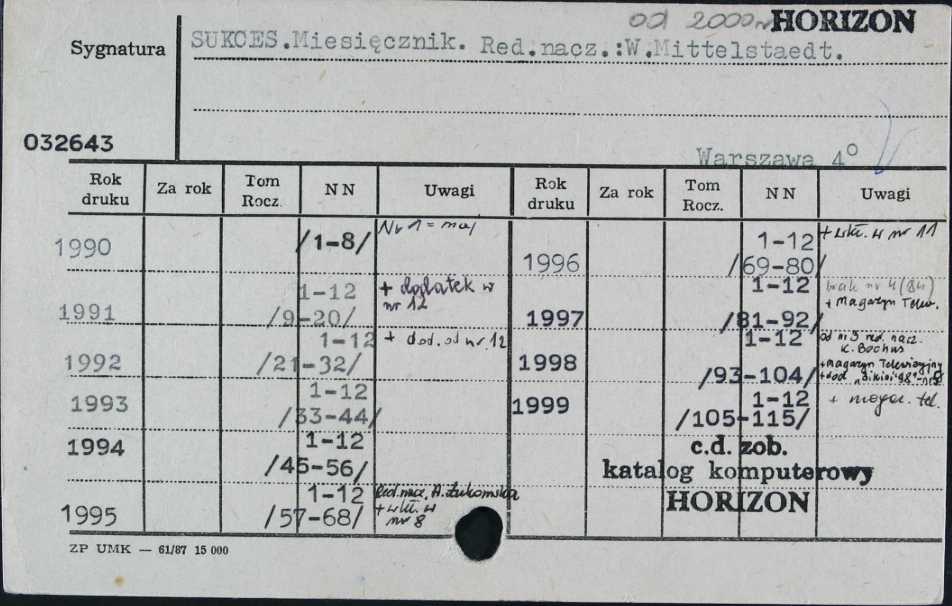 od 2000 r. HORIZON
Sygnatura
SUKCES.Miesięcznik. Red.nacz.:W.Mittelstaedt.
032643
Warszawa 4°
Rok druku Za rok Tom Rocz. NN Uwagi Rok druku Za rok Tom Rocz. NN Uwagi
1990 /1-8/ Nr 1 = maj
1991 1-12 /9-20/ + dodatek w nr 12
1992 1-12 /21-32/ + dod. od nr 12
1993 1-12 /33-44/
1994 1-12 /45-56/
1995 1-12 /57-68/ Red. nacz. A. Żukomska + wkł. w nr 8
1996 1-12 /69-80/ + wkł. w nr 11
1997 1-12 /81-92/ brak nr 4 (84) + Magazyn Telew.
1998 1-12 /93-104/ od nr 3 red. nacz. K. Bochus + Magazyn Telewizyjny + dod.
1999 1-12 /105-115/ + magaz. tel.
c.d. zob.
katalog komputerowy
HORIZON
ZP UMK — 61/87 15 000